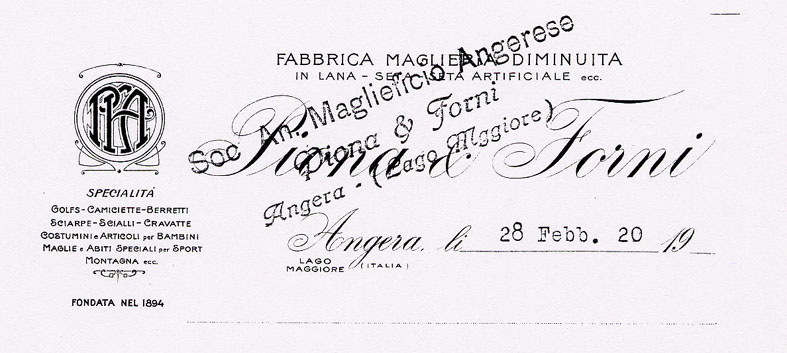 FABBRICA MAGLIERIA DIMINUITA
IN LANA - SETA - SETA ARTIFICIALE ecc.
Piona & Forni
Soc. An. Maglieficio Angerese
Piona & Forni
Angera - (Lago Mggiore)
PFA
SPECIALITÁ
GOLFS - CAMICIETTE - BERRETTI
SCIARPE - SCIALLI - CRAVATTE
COSTUMINI e ARTICOLI per BAMBINI
MAGLIE e ABITI SPECIALI per SPORT
MONTAGNA ecc.
FONDATA NEL 1894
Angera, li 28 Febb. 20 19
LAGO
MAGGIORE (ITALIA)